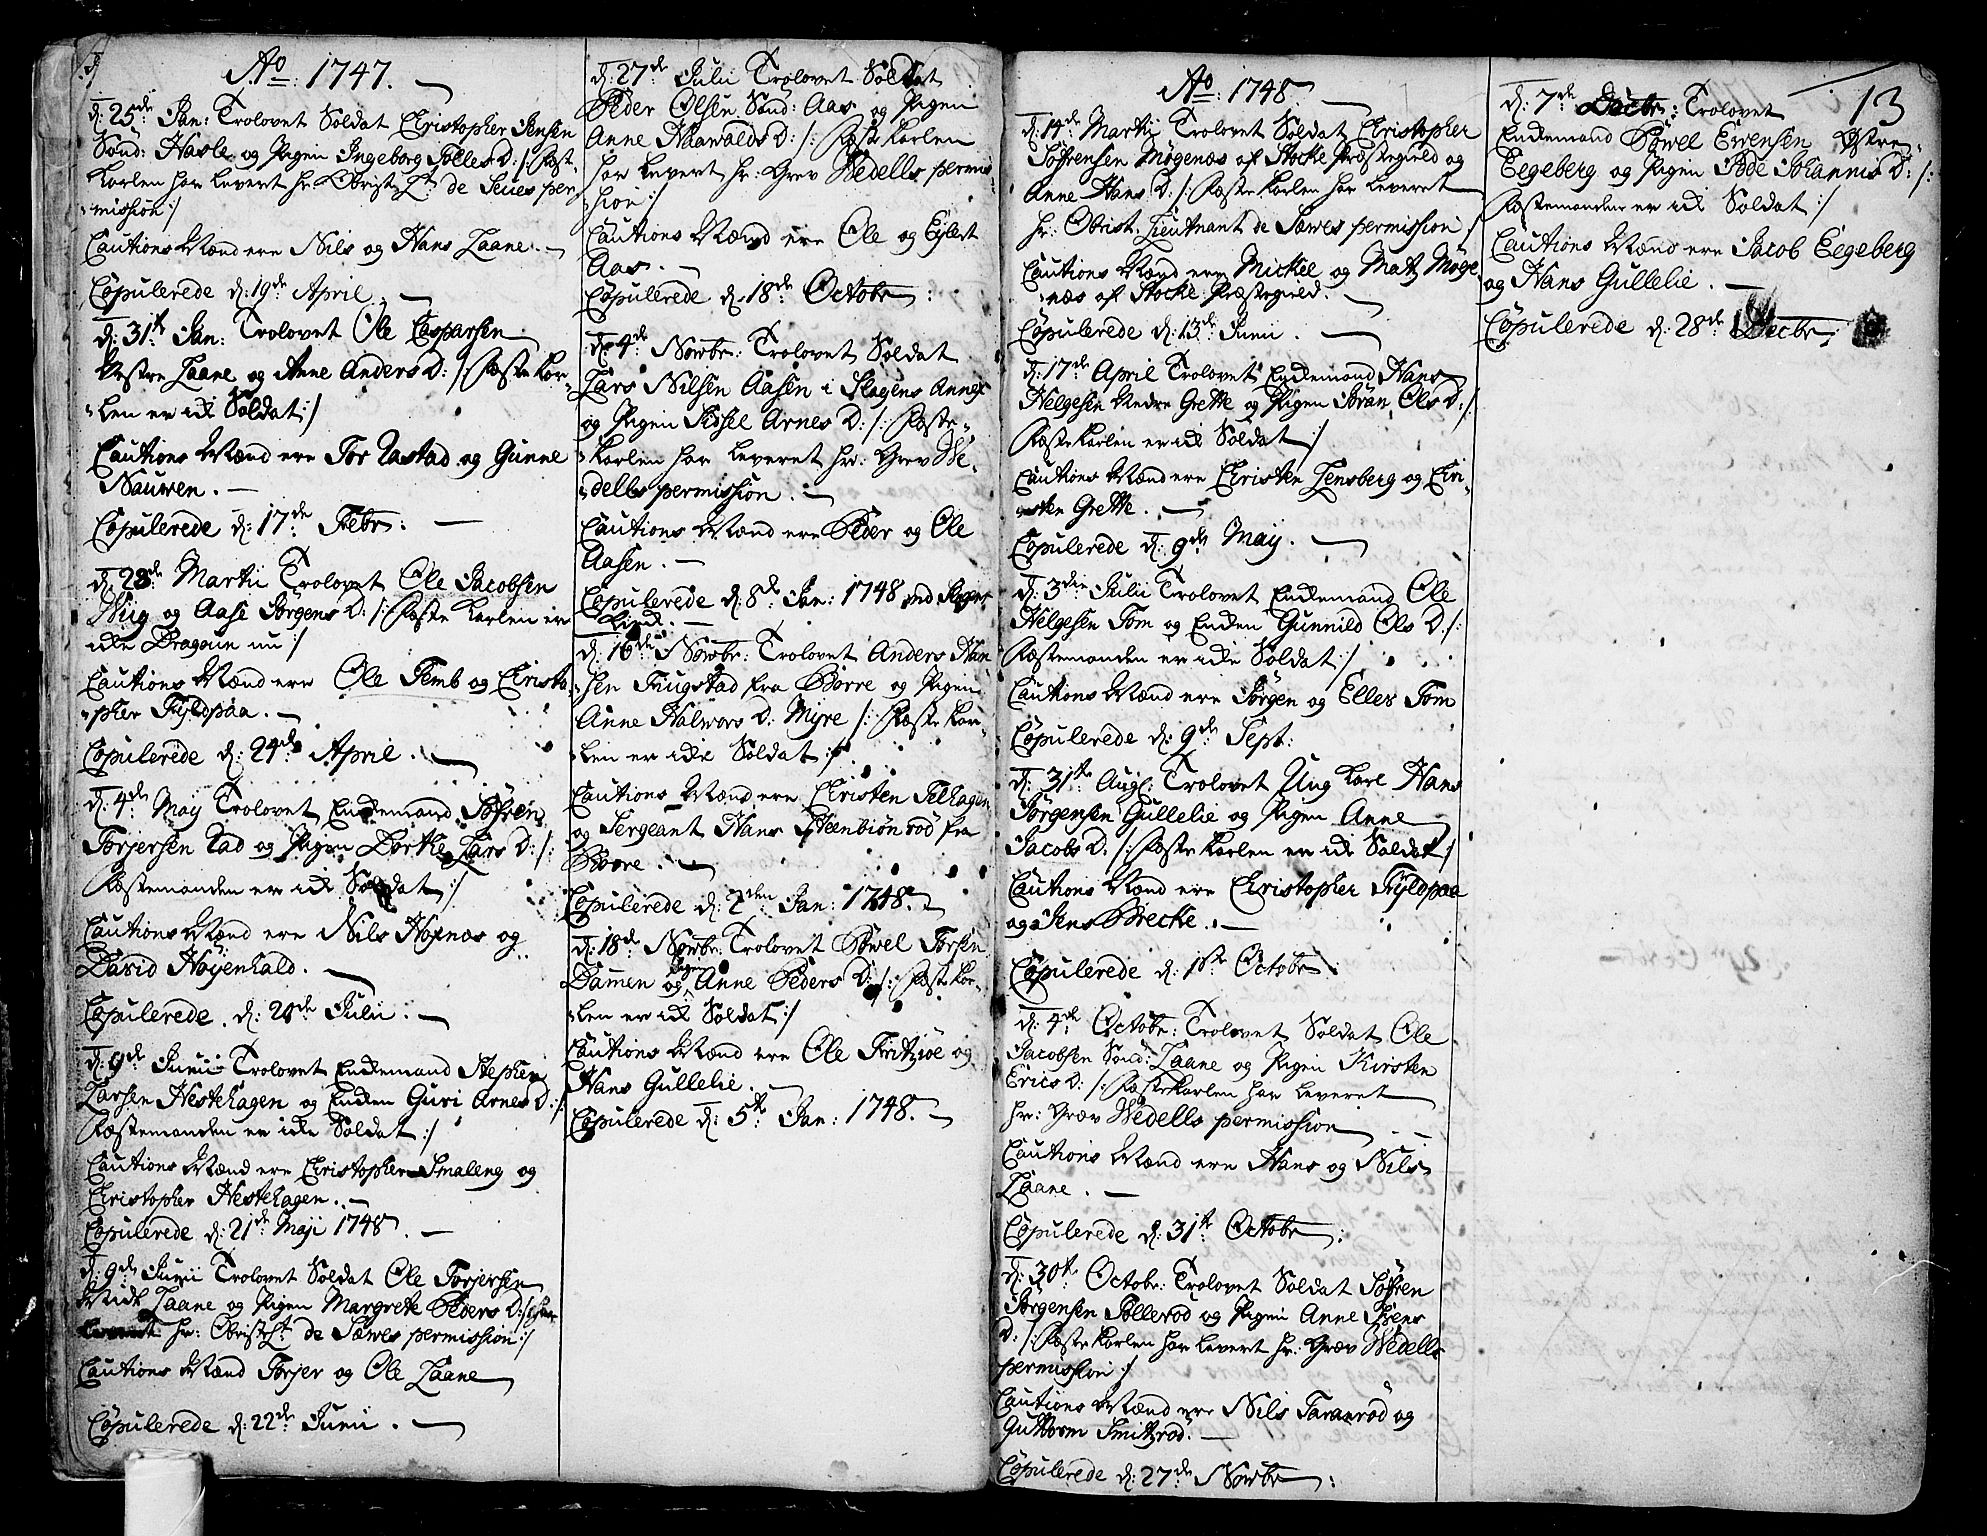 Ao: 1747.
d: 25de Jan: Trolovet Soldat Christopher Jensen
Sønd: Hasle og Pigen Ingeborg Tolles D: /: Fæste
Karlen har levert hr: Obrist Lt: de Seues per
mission :/
Cautions Mænd ere Nils og Hans Laane.
Copulerede d: 19de April.
d: 31te Jan: Trolovet Ole Casparsen
Vestre Laane og Anne Anders D: /: Fæste Kar-
len er icke Soldat :/
Cautions Mænd ere Tor Rastad og Gunne
Nauwen.
Copulerede d: 17de Febr:
d: 28de Martii Trolovet Ole Jacobsen
Wiig og Aase Jørgens D: /: Fæste Karlen er
icke Dragoun nu :/
Cautions Mænd ere Ole Temb og Christo-
pher Fyldpaa.
Copulerede d: 24de April.
d: 4de Maij Trolovet Enckemand Søfren
Torjersen Rad og Pigen Dorthe Lars D: /:
Fæstemanden er icke Soldat :/
Cautions Mænd ere Nils Hoxnæs og
David Høyenhald.
Copulerede d: 20de Julii.
d: 9de Junii Trolovet Enckemand Stephen
Larsen Hestehagen og Encken Guri Arnes D: /:
Fæstemanden er icke Soldat :/
Cautions Mænd ere Christopher Smaleng og
Christopher Hestehagen.
Copulerede d: 21de Maji 1748.
d: 9de Junii Trolovet Soldat Ole Torjersen
Laane og Pigen Margrethe Peders D: /: har
levert hr: Obrist Lt: de Sæwes permission :/
Cautions Mænd Torjer og Ole Laane
Copulerede d: 22de Junii.
d: 27de Julii Trolovet Soldat
Peder Olsen Sønd: Aas og Pigen
Anne Haawalds D: /: Fæste Karlen
har levert hr: Grev Wedells permis
sion :/
Cautions Mænd ere Ole og Eylert
Aas.
Copulerede d: 18de Octobr:
d: 4de Novbr: Trolovet Soldat
Lars Nilsen Aasen i Slagens Annex
og Pigen Sidsel Arnes D: /: Fæste-
Karlen har leveret hr: Grev We-
dells permission.
Cautions Mænd ere Peder og Ole
Aasen.
Copulerede d: 8de Jan: 1748 ved Slagens
Kirck.
d: 16de Novbr: Trolovet Anders Han
sen Fuugstad fra Borre og Pigen
Anne Halwors D: Myre /: Fæste Kar-
len er icke Soldat :/
Cautions Mænd ere Christen Telhagen
og Sergeant Hans Steenbiönröd fra
Borre.
Copulerede d: 2den Jan: 1748.
d: 18de Novbr: Trolovet Powel Torsen
Damen og Pigen Anne Peders D: /: Fæste Kar-
len er icke Soldat :/
Cautions Mænd ere Ole Fritzøe og
Hans Gullelie.
Copulerede d: 5te Jan: 1748.
Ao: 1748
d: 14de Martii Trolovet Soldat Christopher
Søfrensen Møgenæs af Stocke Præstegield og
Anne Hans D: /: Fæste Karlen har leveret
hr: Obrist Lieutnant de Sæwes permission :/
Cautions Mænd ere Mickel og Matz Møge
næs af Stocke Præstegield.
Copulerede d: 13de Junii
d: 17de April Trolovet Enckemand Hans
Helgesen Nedre Grette og Pigen Jøran Ols D: /:
Fæste Karlen er icke Soldat :/
Cautions Mænd ere Christen Lensberg og Chri-
sten Grette.
Copulerede d: 9de Maij.
d: 3die Julii Trolovet Enckemand Ole
Helgesen Tom og Encken Gunnild Ols D: /:
Fæstemanden er icke Soldat :/
Cautions Mænd ere Jørgen og Elles Tom
Copulerede d: 9de Sept:
d: 31te Aug: Trolovet Ung Karl Hans
Jørgensen Gullelie og Pigen Anne
Jacobs D: /: Fæste Karlen er icke Soldat :/
Cautions Mænd ere Christopher Fyldpaa
og Jens Brecke.
Copulerede d: 1ste Octobr:
d: 4de Octobr: Trolovet Soldat Ole
Jacobsen Sønd: Laane og Pigen Kirsten
Erics D: /: Fæste Karlen har leveret
hr: Græv Wedells permission
Cautions Mænd ere Hans og Nils
Laane.
Copulerede d: 31te Octobr:
d: 30te Octobr: Trolovet Soldat Søfren
Jørgensen Tollerød og Pigen Anne Iwers
D: /: Fæste Karlen har levert hr: Græv Wedells
permission :/
Cautions Mænd ere Nils Taranrød og
Guttorm Smitzrød.
Copulerede d: 27de Novbr:
13
d: 7de Decbr: Trolovet
Enckemand Powel Ewensen Østre-
Eegeberg og Pigen Johannis D: /:
Fæstemanden er icke Soldat :/
Cautions Mænd ere Jacob Eegeberg
og Hans Gullelie.
Copulerede d: 28de Decbr: